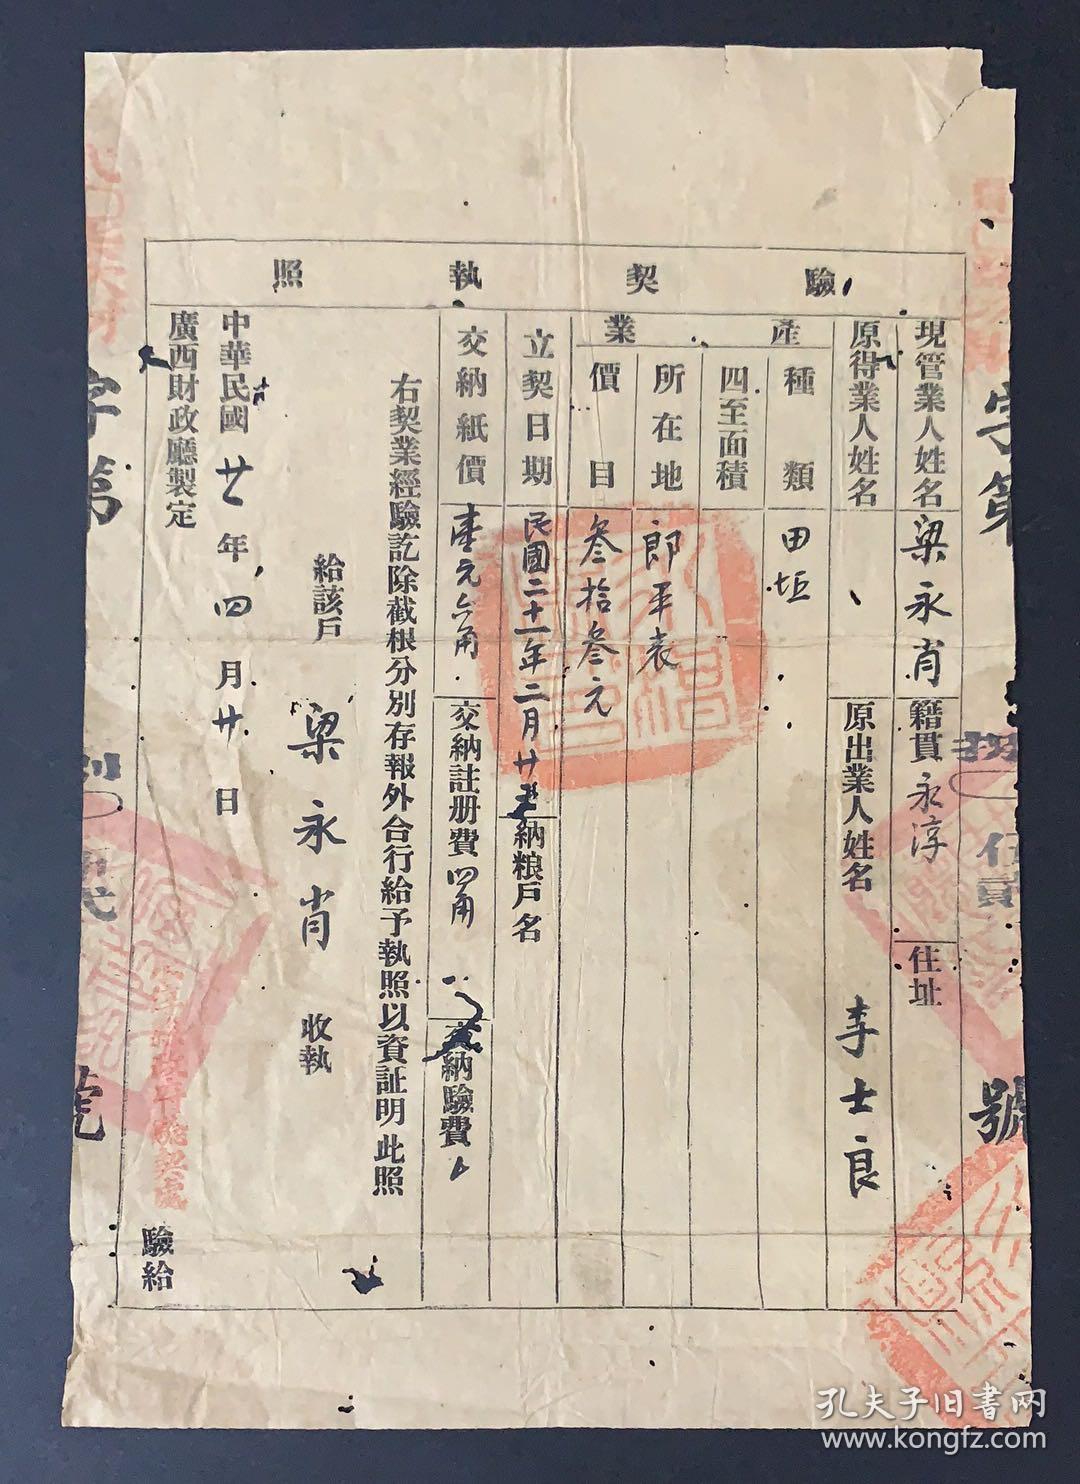 驗契執照
現管業人姓名 梁永肖 籍貫 永淳 住址
原得業人姓名 原出業人姓名 李士良
產業
種類 田垣
四至面積
所在地 郎平表
價目 叁拾叁元
立契日期 民國二十一年二月廿五 納粮戶名
交納紙價 壹元六角 交納註册費 四角 交納驗費
右契業經驗訖除截根分別存報外合行給予執照以資証明此照
給該戶 梁永肖 收執
中華民國廿年四月廿日
廣西財政廳製定
驗給
字第
號
字第
號
孔夫子旧书网
www.kongfz.com